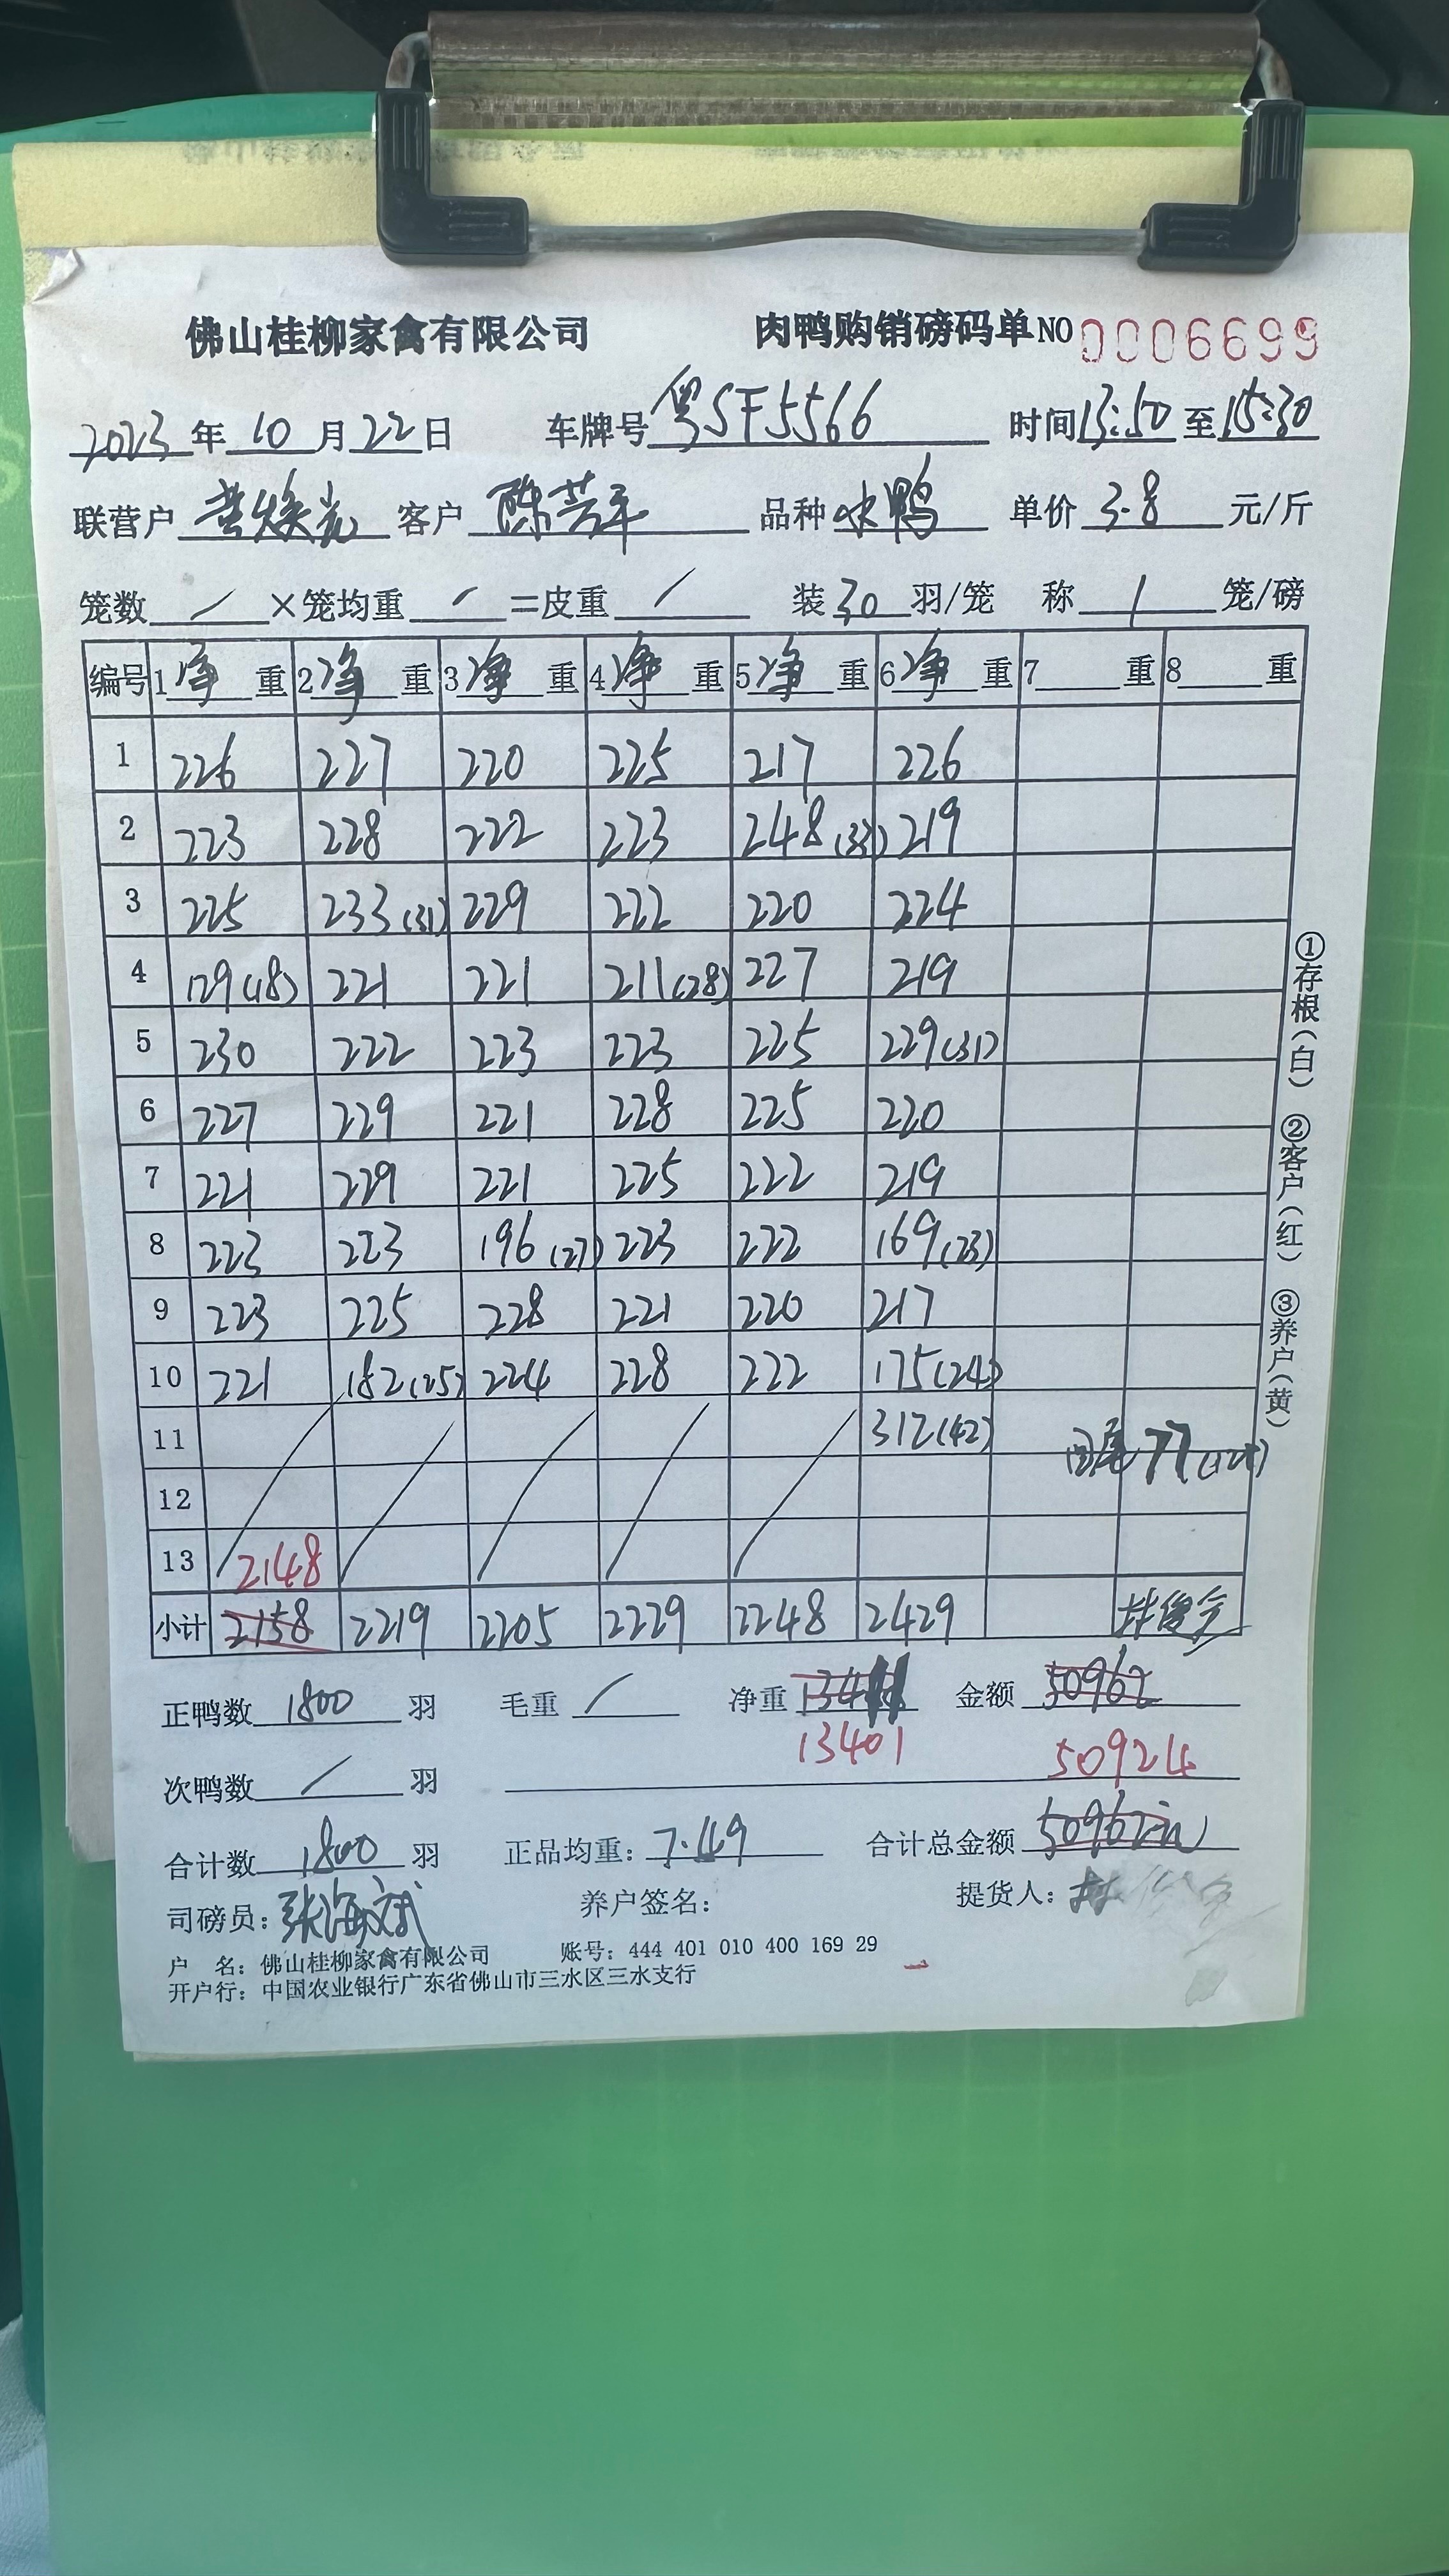 佛山桂柳家禽有限公司 肉鸭购销磅码单NO 0006699
2023年10月22日 车牌号 粤SF5566 时间13:50至15:30
联营户 黄焕光 客户 陈芳平 品种 水鸭 单价 3.8 元/斤
笼数 / ×笼均重 / =皮重 / 装 30 羽/笼 称 1 笼/磅
编号 1净重 2净重 3净重 4净重 5净重 6净重 7 重 8 重
1 226 227 220 225 217 226
2 223 228 222 223 248(33) 219
3 225 233(31) 229 222 220 224
4 129(18) 221 221 211(28) 227 219
5 230 222 223 223 225 229(31)
6 227 229 221 228 225 220
7 221 229 221 225 222 219
8 223 223 196(27) 223 222 169(23)
9 223 225 228 221 220 217
10 221 182(25) 224 228 222 175(24)
11 312(42) 77
12
13 2148
小计 2158 2219 2205 2229 2248 2429
正鸭数 1800 羽 毛重 / 净重 金额 50962
13401 50924
次鸭数 / 羽
合计数 1800 羽 正品均重: 7.449 合计总金额 50962元
司磅员: 张海斌 养户签名: 提货人: 林
户 名: 佛山桂柳家禽有限公司 账号: 444 401 010 400 169 29
开户行: 中国农业银行广东省佛山市三水区三水支行
①存根(白) ②客户(红) ③养户(黄)